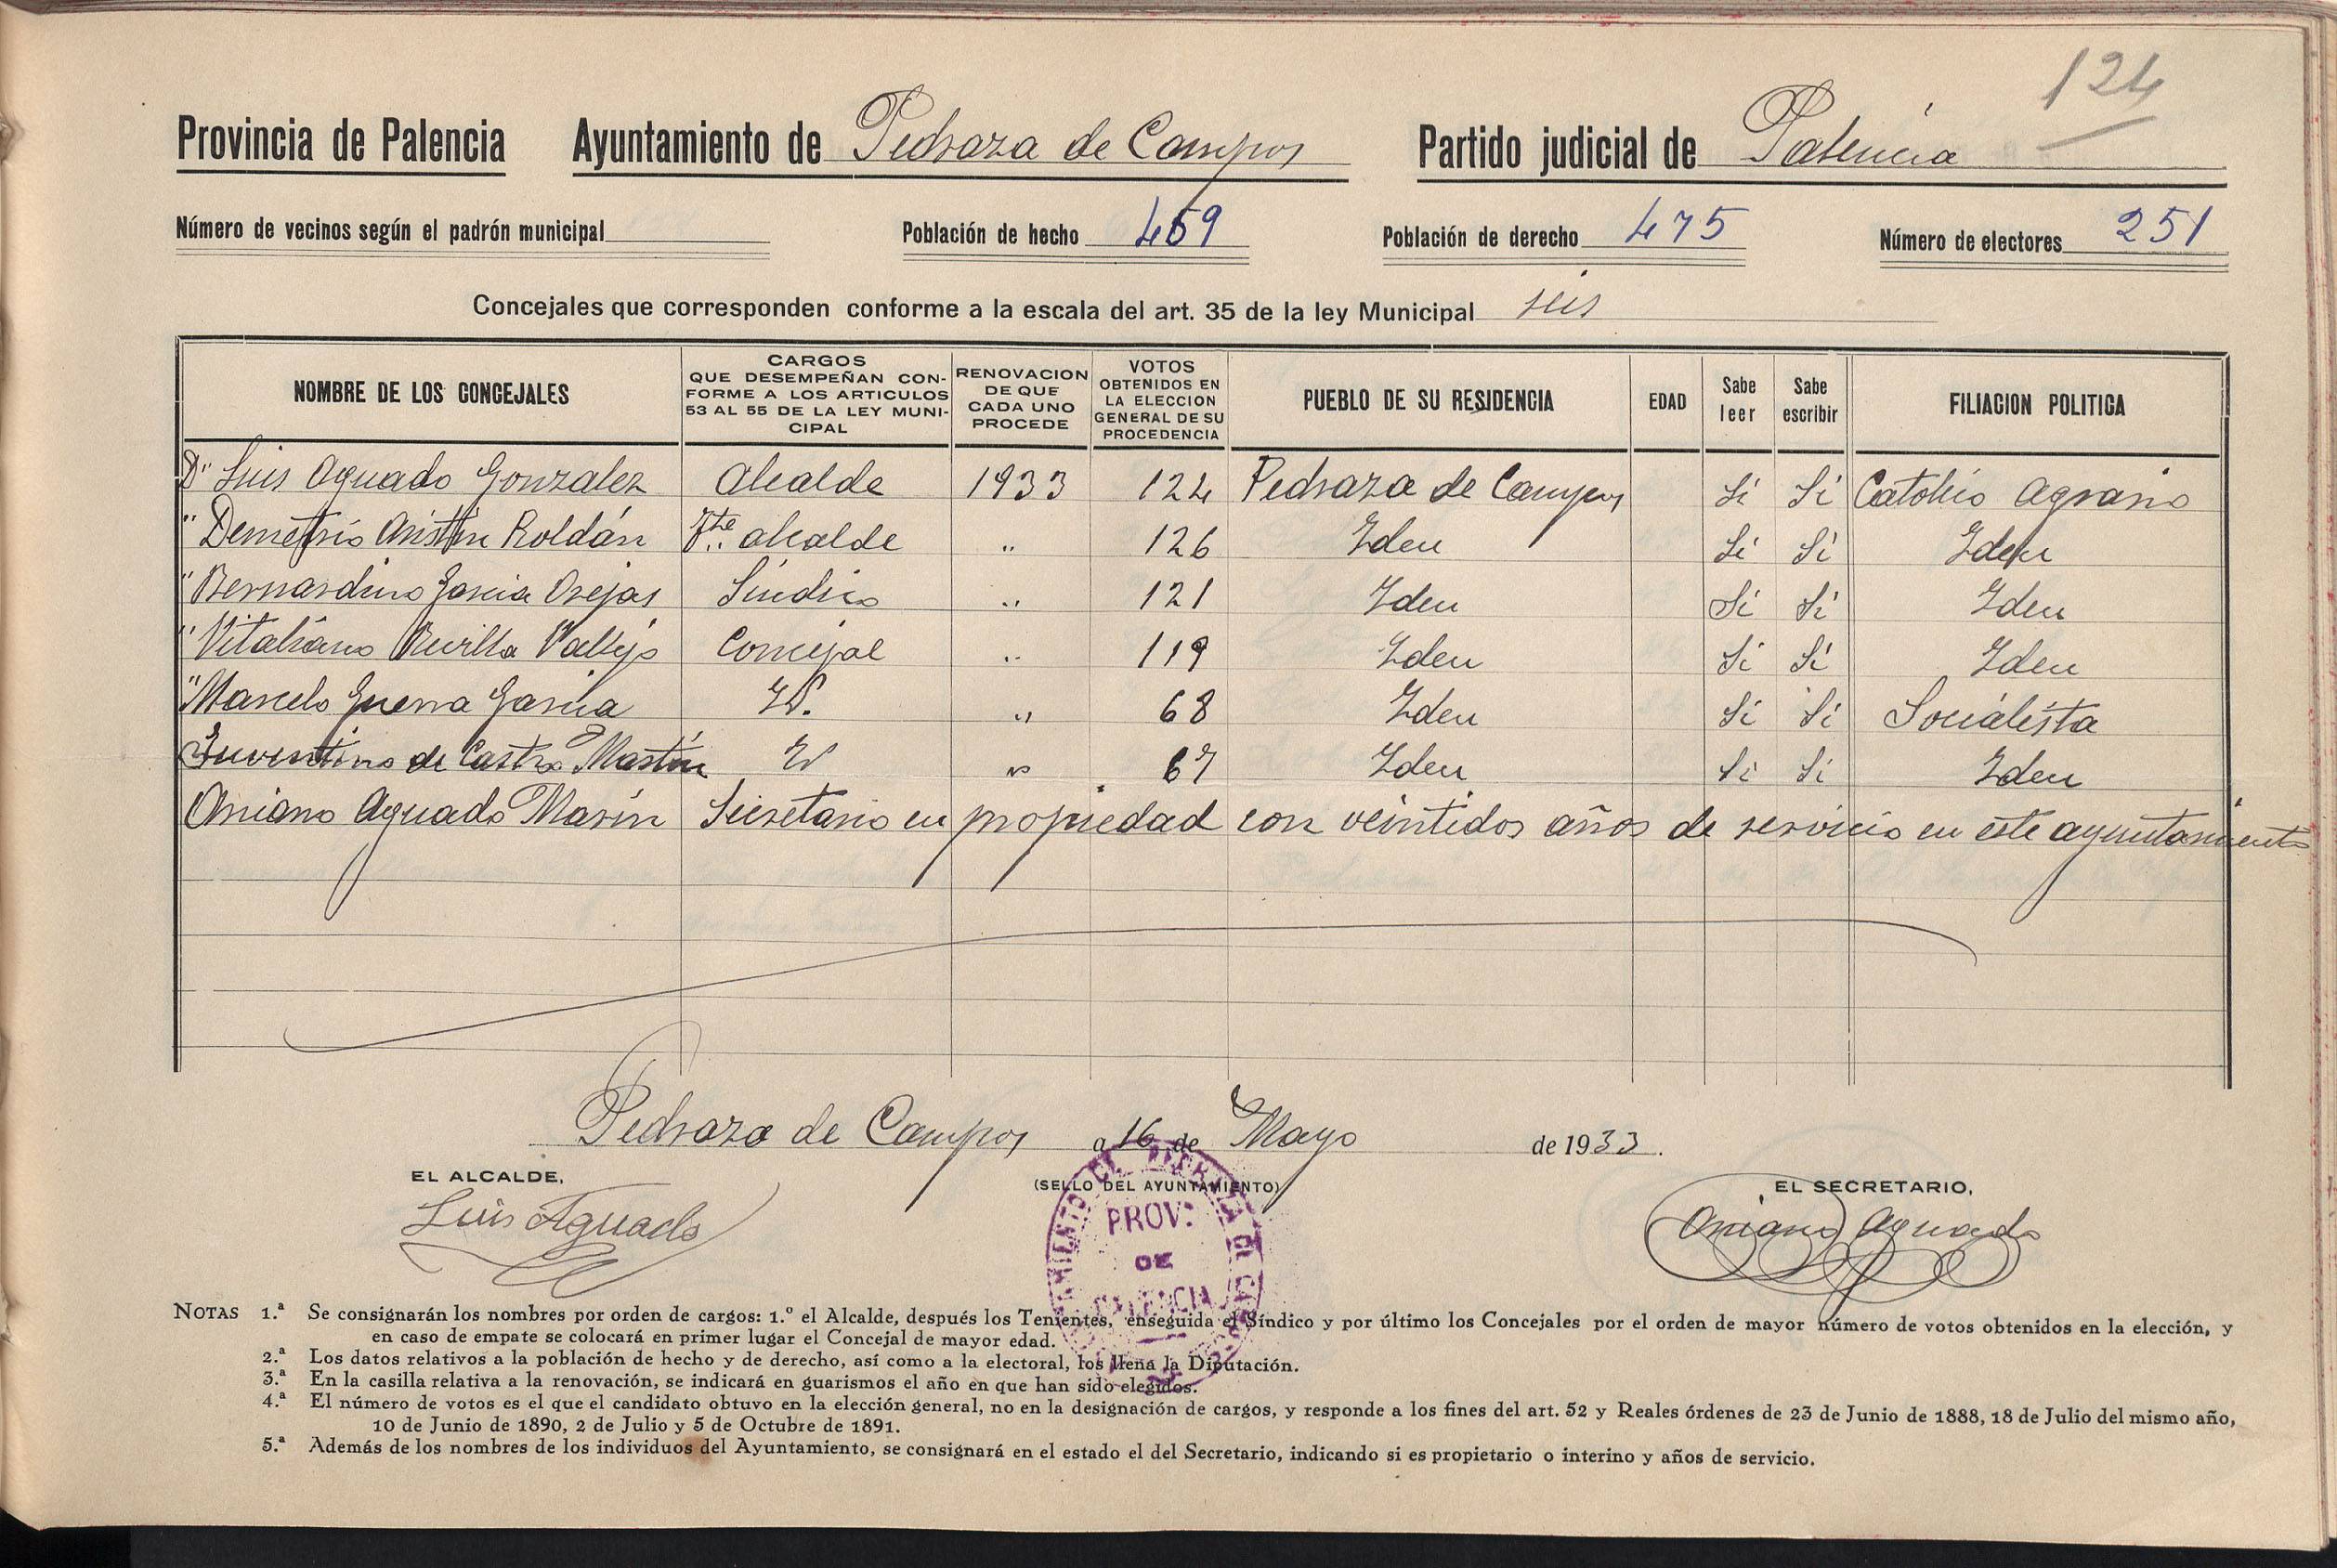 124
Provincia de Palencia Ayuntamiento de Pedraza de Campos Partido judicial de Palencia
Número de vecinos según el padrón municipal Población de hecho 459 Población de derecho 475 Número de electores 251
Concejales que corresponden conforme a la escala del art. 35 de la ley Municipal seis
NOMBRE DE LOS CONCEJALES
CARGOS
QUE DESEMPEÑAN CON-
FORME A LOS ARTICULOS
53 AL 55 DE LA LEY MUNI-
CIPAL
RENOVACION
DE QUE
CADA UNO
PROCEDE
VOTOS
OBTENIDOS EN
LA ELECCION
GENERAL DE SU
PROCEDENCIA
PUEBLO DE SU RESIDENCIA
EDAD
Sabe
leer
Sabe
escribir
FILIACION POLITICA
Dn Luis Aguado Gonzalez Alcalde 1933 124 Pedraza de Campos Sí Sí Católico Agrario
" Demetrio Aristín Roldán Tte. alcalde " 126 Idem Sí Sí Idem
" Bernardino Garcia Orejas Síndico " 121 Idem Sí Sí Idem
" Vitaliano Revilla Vallejo Concejal " 119 Idem Sí Sí Idem
" Marcelo Guerra Garcia Id. " 68 Idem Sí Sí Socialista
Juventino de Castro Martín Id " 67 Idem Sí Sí Idem
Aniano Aguado Marín Secretario en propiedad con veintidos años de servicio en este ayuntamiento
Pedraza de Campos a 16 de Mayo de 1933.
EL ALCALDE, (SELLO DEL AYUNTAMIENTO) EL SECRETARIO,
Luis Aguado Aniano Aguado
PROV:
DE
PALENCIA
NOTAS 1.ª Se consignarán los nombres por orden de cargos: 1.º el Alcalde, después los Tenientes, enseguida el Síndico y por último los Concejales por el orden de mayor número de votos obtenidos en la elección, y
en caso de empate se colocará en primer lugar el Concejal de mayor edad.
2.ª Los datos relativos a la población de hecho y de derecho, así como a la electoral, los llena la Diputación.
3.ª En la casilla relativa a la renovación, se indicará en guarismos el año en que han sido elegidos.
4.ª El número de votos es el que el candidato obtuvo en la elección general, no en la designación de cargos, y responde a los fines del art. 52 y Reales órdenes de 23 de Junio de 1888, 18 de Julio del mismo año,
10 de Junio de 1890, 2 de Julio y 5 de Octubre de 1891.
5.ª Además de los nombres de los individuos del Ayuntamiento, se consignará en el estado el del Secretario, indicando si es propietario o interino y años de servicio.